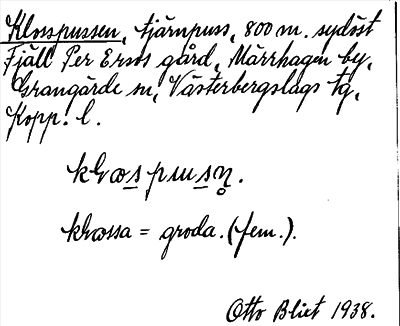 Klosspussen, tjärnpuss, 800 m. sydöst
Fjäll Per Ersos gård, Märrhagen by,
Grangärde sn, Västerbergslags tg,
Kopp. l.
klossa = groda. (fem.).
Otto Blixt 1938.